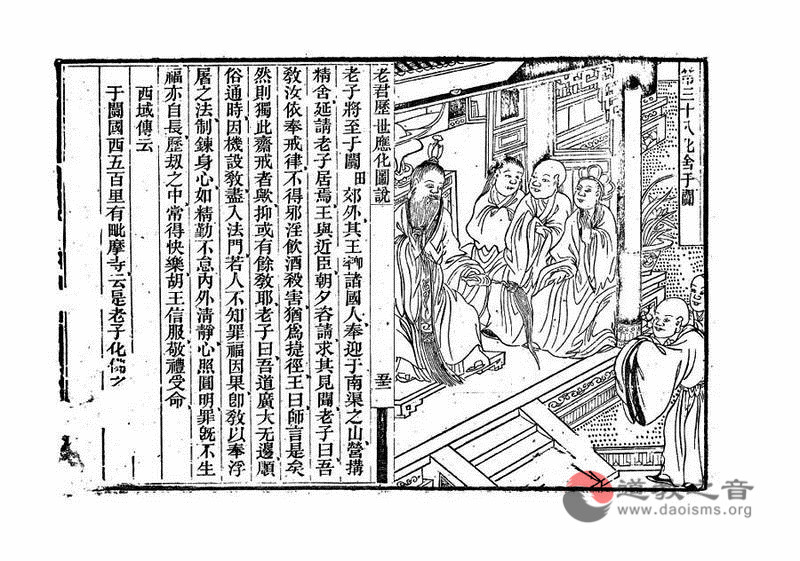 第三十八化舍于闐
老君歷世應化圖說
老子將至于闐郊外其王卹諸國人奉迎于南渠之山營搆
精舍延請老子居焉王與近臣朝夕咨請求其見聞老子曰吾
教汝依奉戒律不得邪淫飲酒殺害猶為捷徑王曰師言是矣
然則獨此齋戒者歟抑或有餘教耶老子曰吾道廣大无邊順
俗通時因機設教盡入法門若人不知罪福因果卽教以奉浮
屠之法制鍊身心如精勤不怠內外清靜心照圓明罪旣不生
福亦自長歷刼之中常得快樂胡王信服敬禮受命
西域傳云
于闐國西五百里有毗摩寺云是老子化
道教之音
www.daoisms.org